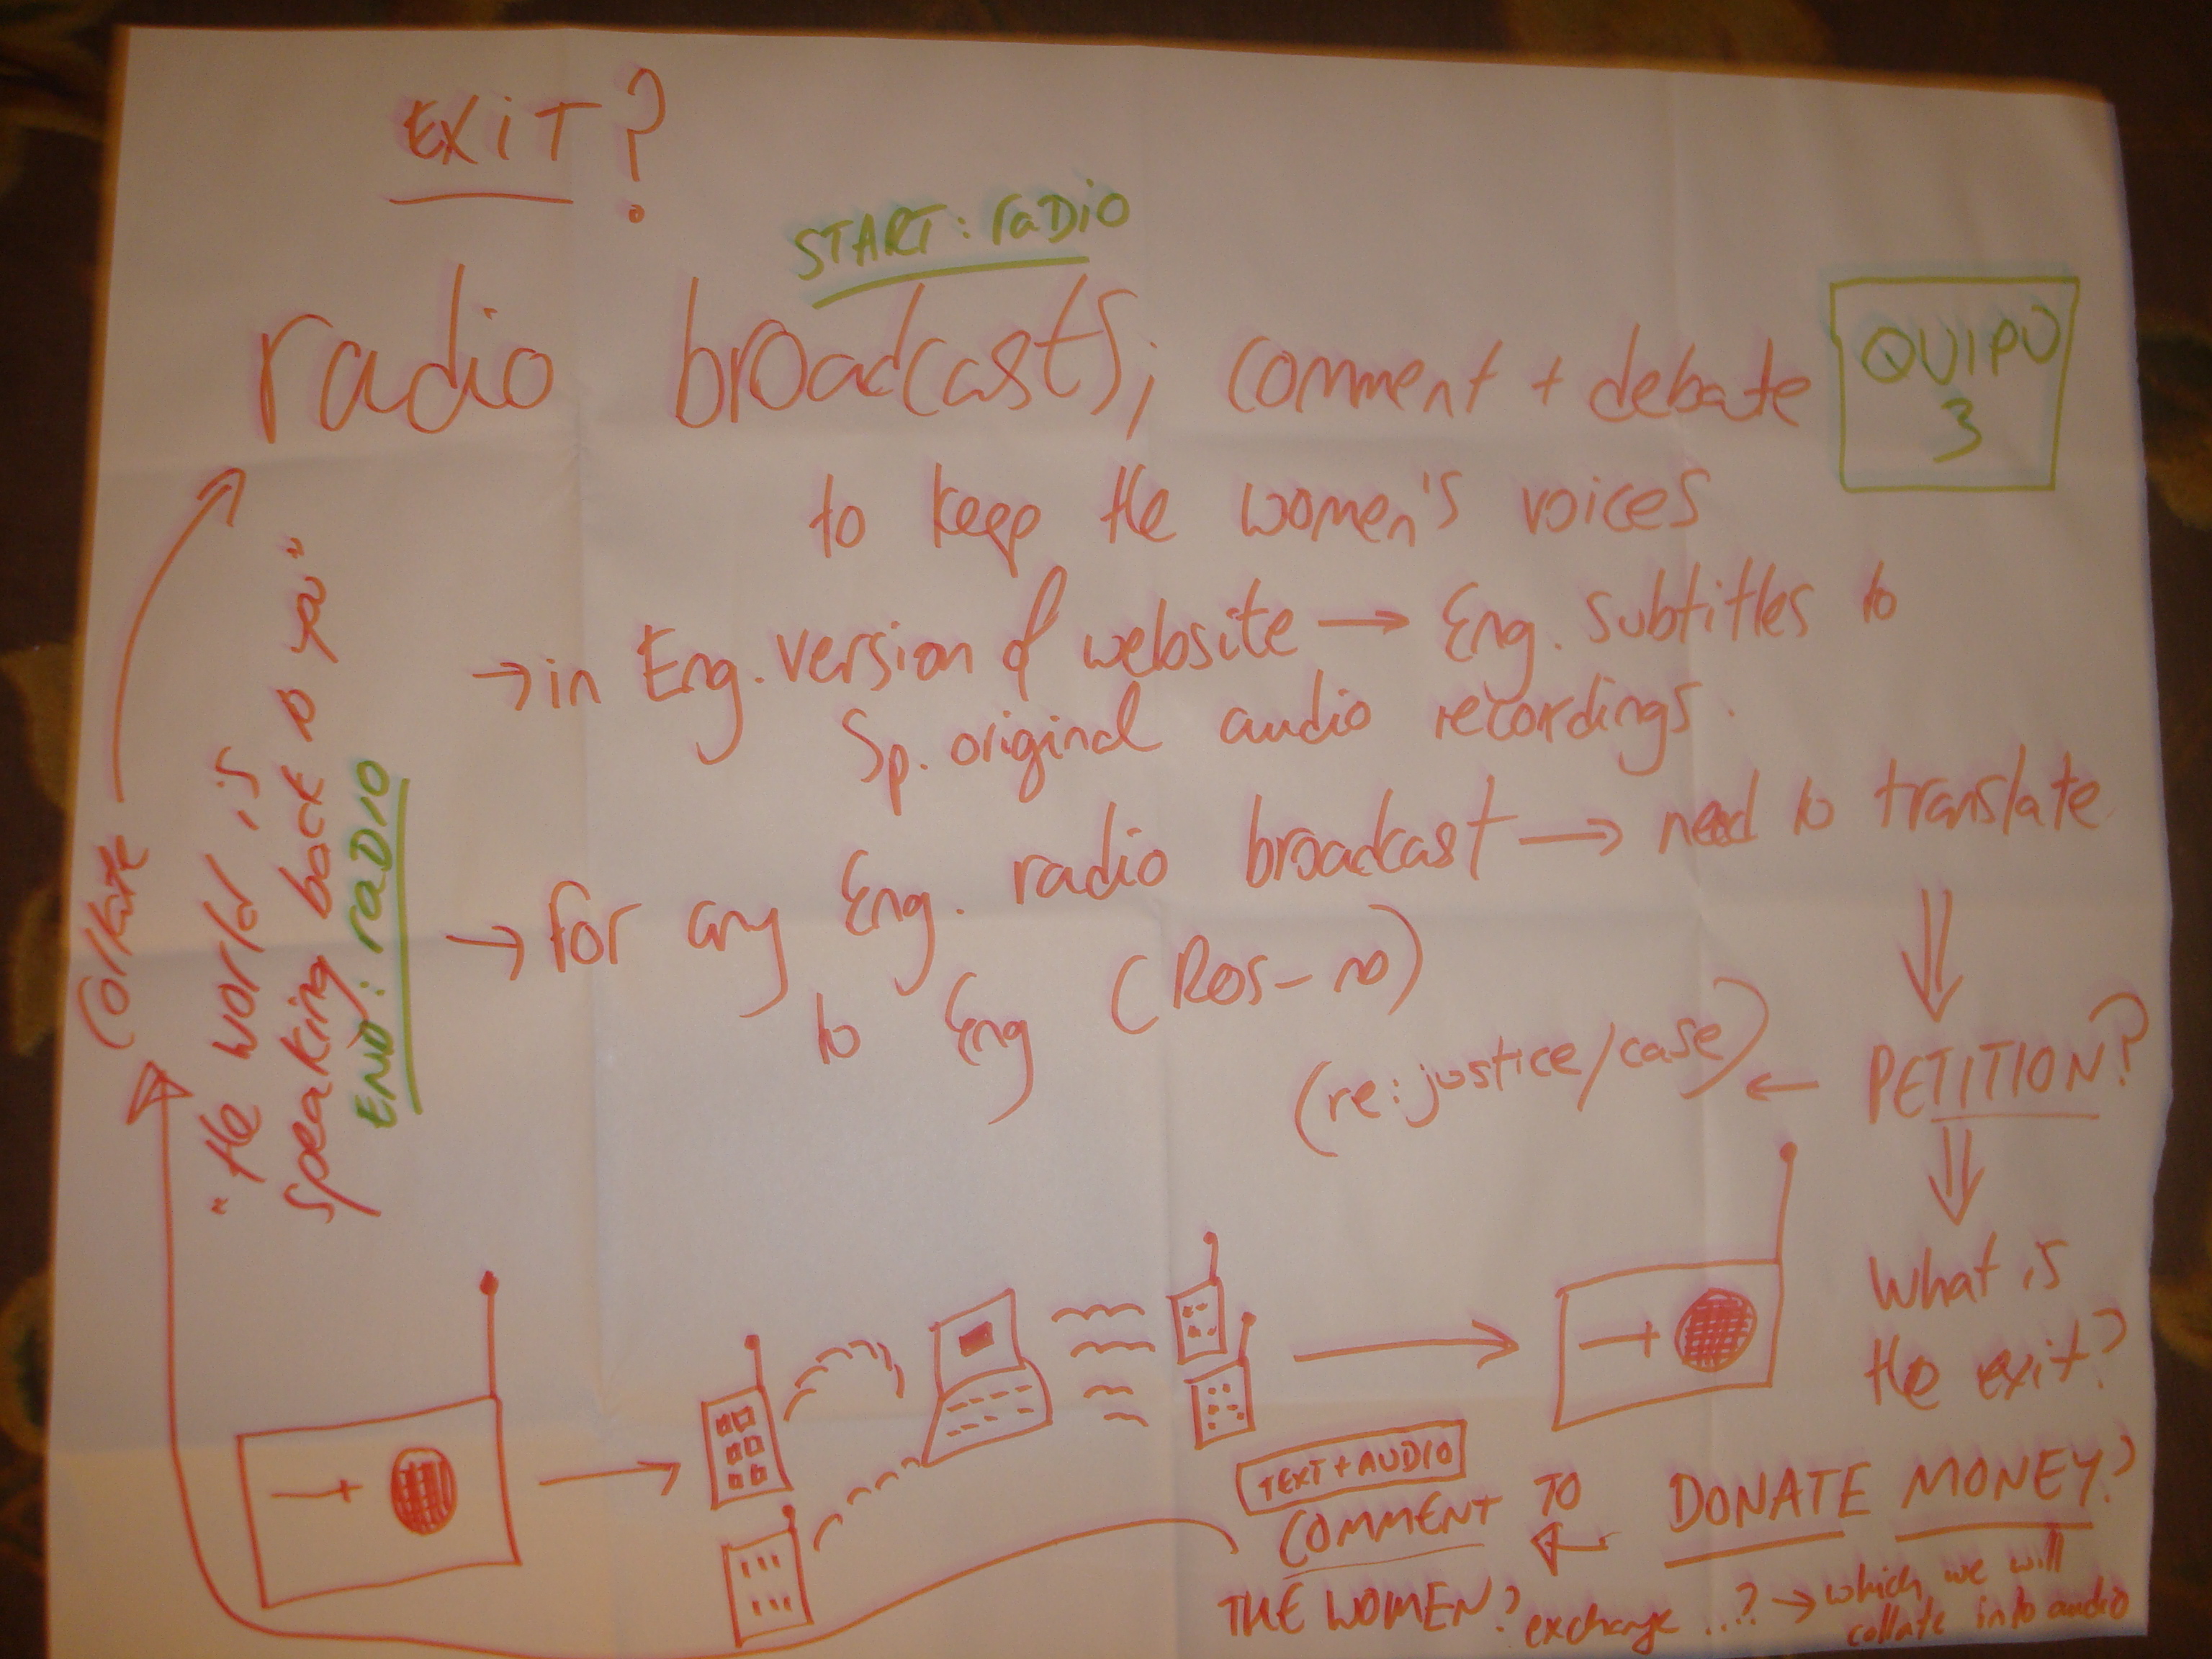 EXiT?
START: raDio
radio broadcasts; comment + debate
QUIPU
3
to keep the women's voices
→ in Eng. version of website → Eng. subtitles to
Sp. original audio recordings.
→ for any Eng. radio broadcast → need to translate
to Eng (Ros-no)
PETITION?
(re: justice/case)
What is
the exit?
DONATE MONEY?
TEXT + AUDIO
COMMENT TO
THE WOMEN? exchange ...? → which we will
collate into audio
Collate
"the world is
speaking back to you"
END: raDio